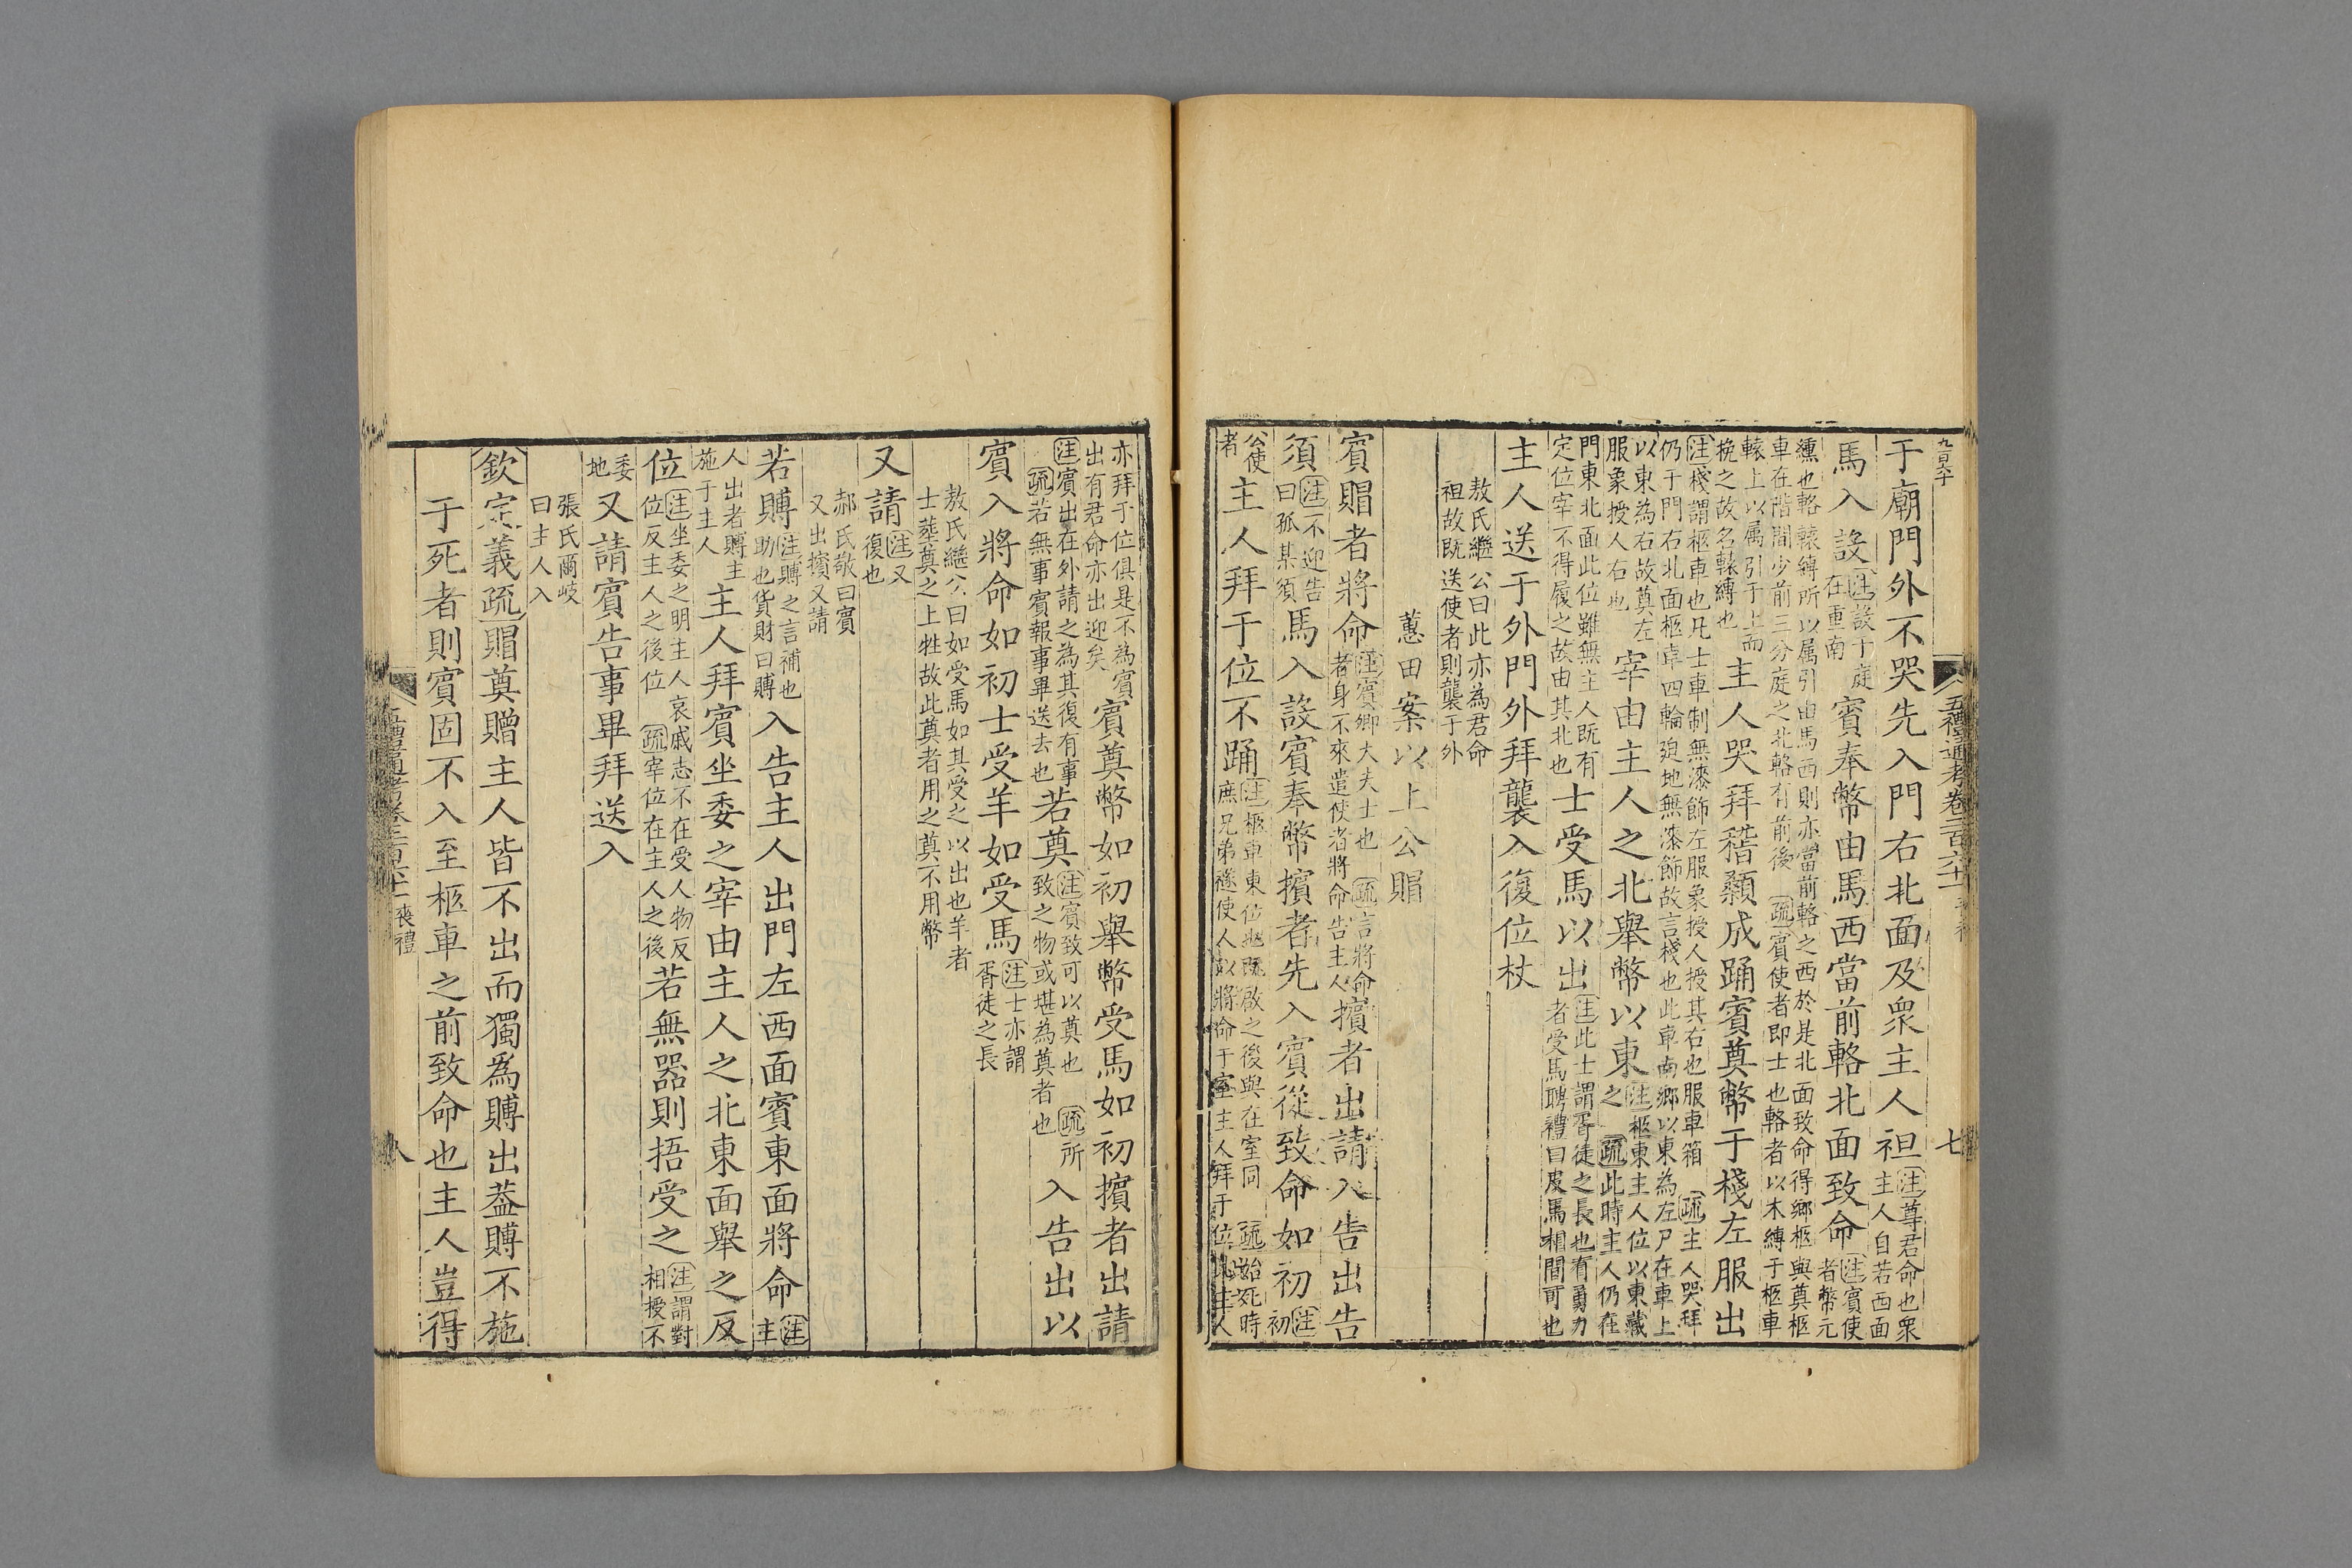 九百六十
五禮通考卷二百六十一
七
于廟門外不哭先入門右北面及衆主人袒注尊君命也衆主人自若西面
馬入設注設于庭在重南賓奉幣由馬西當前輅北面致命注賓使者幣元
纁也輅轅縛所以属引由馬西則亦當前輅之西於是北面致命得鄉柩與奠柩車在階間少前三分庭之北輅有前後疏賓使者即士也輅者以木縛于柩車
轅上以属引于上而挽之故名轅縛也主人哭拜稽顙成踊賓奠幣于棧左服出
注棧謂柩車也凡士車制無漆飾左服象授人授其右也服車箱疏主人哭拜仍于門右北面柩車四輪迫地無漆飾故言棧也此車南鄉以東為左尸在車上
以東為右故奠左服象授人右也宰由主人之北舉幣以東注柩東主人位以東藏之疏此時主人仍在
門東北面此位雖無主人既有定位宰不得履之故由其北也士受馬以出注此士謂胥徒之長也有勇力者受馬聘禮曰皮馬相間可也
主人送于外門外拜襲入復位杖
敖氏繼公曰此亦為君命袒故既送使者則襲于外
蕙田案以上公賵
賓賵者將命注賓卿大夫士也者身不來遣使者將命疏言將命告主人擯者出請入告出告
須注不迎告曰孤某須馬入設賓奉幣擯者先入賓從致命如初注初
公使者主人拜于位不踊注柩車東位也既啟之後與在室同疏始死時庶兄弟襚使人以將命于室主人拜于位此主人
亦拜于位俱是不為賓出有君命亦出迎矣賓奠幣如初舉幣受馬如初擯者出請
注賓出在外請之為其復有事疏若無事賓報事畢送去也若奠注賓致可以奠也疏所致之物或堪為奠者也入告出以
賓入將命如初士受羊如受馬注士亦謂胥徒之長
敖氏繼公曰如受馬如其受之以出也羊者士葬奠之上牲故此奠者用之奠不用幣
又請注又復也
郝氏敬曰賓又出擯又請
若賻注賻之言補也助也貨財曰賻入告主人出門左西面賓東面將命注主
人出者賻主施于主人主人拜賓坐委之宰由主人之北東面舉之反
位注坐委之明主人哀戚志不在受人物反位反主人之後位疏宰位在主人之後若無器則捂受之注謂對相授不
委地又請賓告事畢拜送入
張氏爾岐曰主人入
欽定義疏賵奠贈主人皆不出而獨爲賻出葢賻不施
于死者則賓固不入至柩車之前致命也主人豈得
喪禮
八